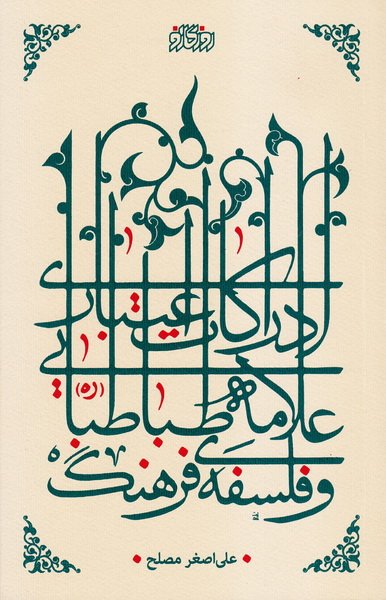 روزگارنو
ادراکات اعتباری
علامه طباطبایی (ره)
و فلسفهٔ فرهنگ
علی‌اصغر مصلح